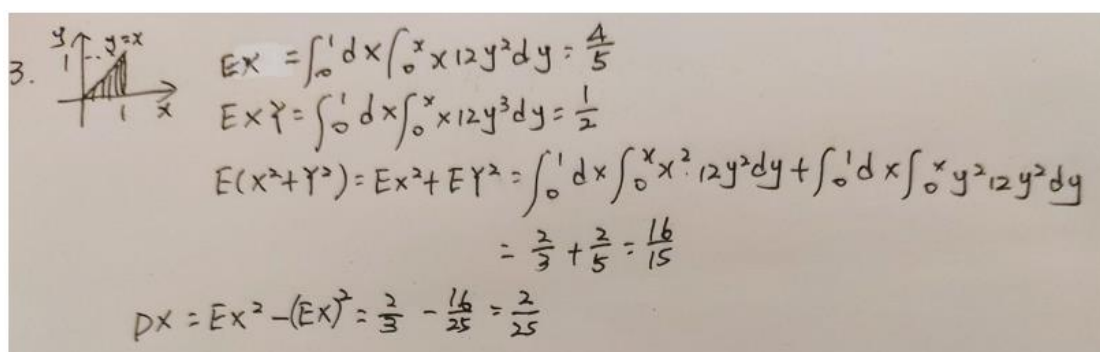 3. y 1 y=x 1 x
EX = ∫₀¹dx∫₀ˣx12y²dy = 4/5
EXY = ∫₀¹dx∫₀ˣx12y³dy = 1/2
E(X²+Y²) = EX²+EY² = ∫₀¹dx∫₀ˣx²·12y²dy + ∫₀¹dx∫₀ˣy²12y²dy
= 2/3 + 2/5 = 16/15
DX = EX² - (EX)² = 2/3 - 16/25 = 2/25